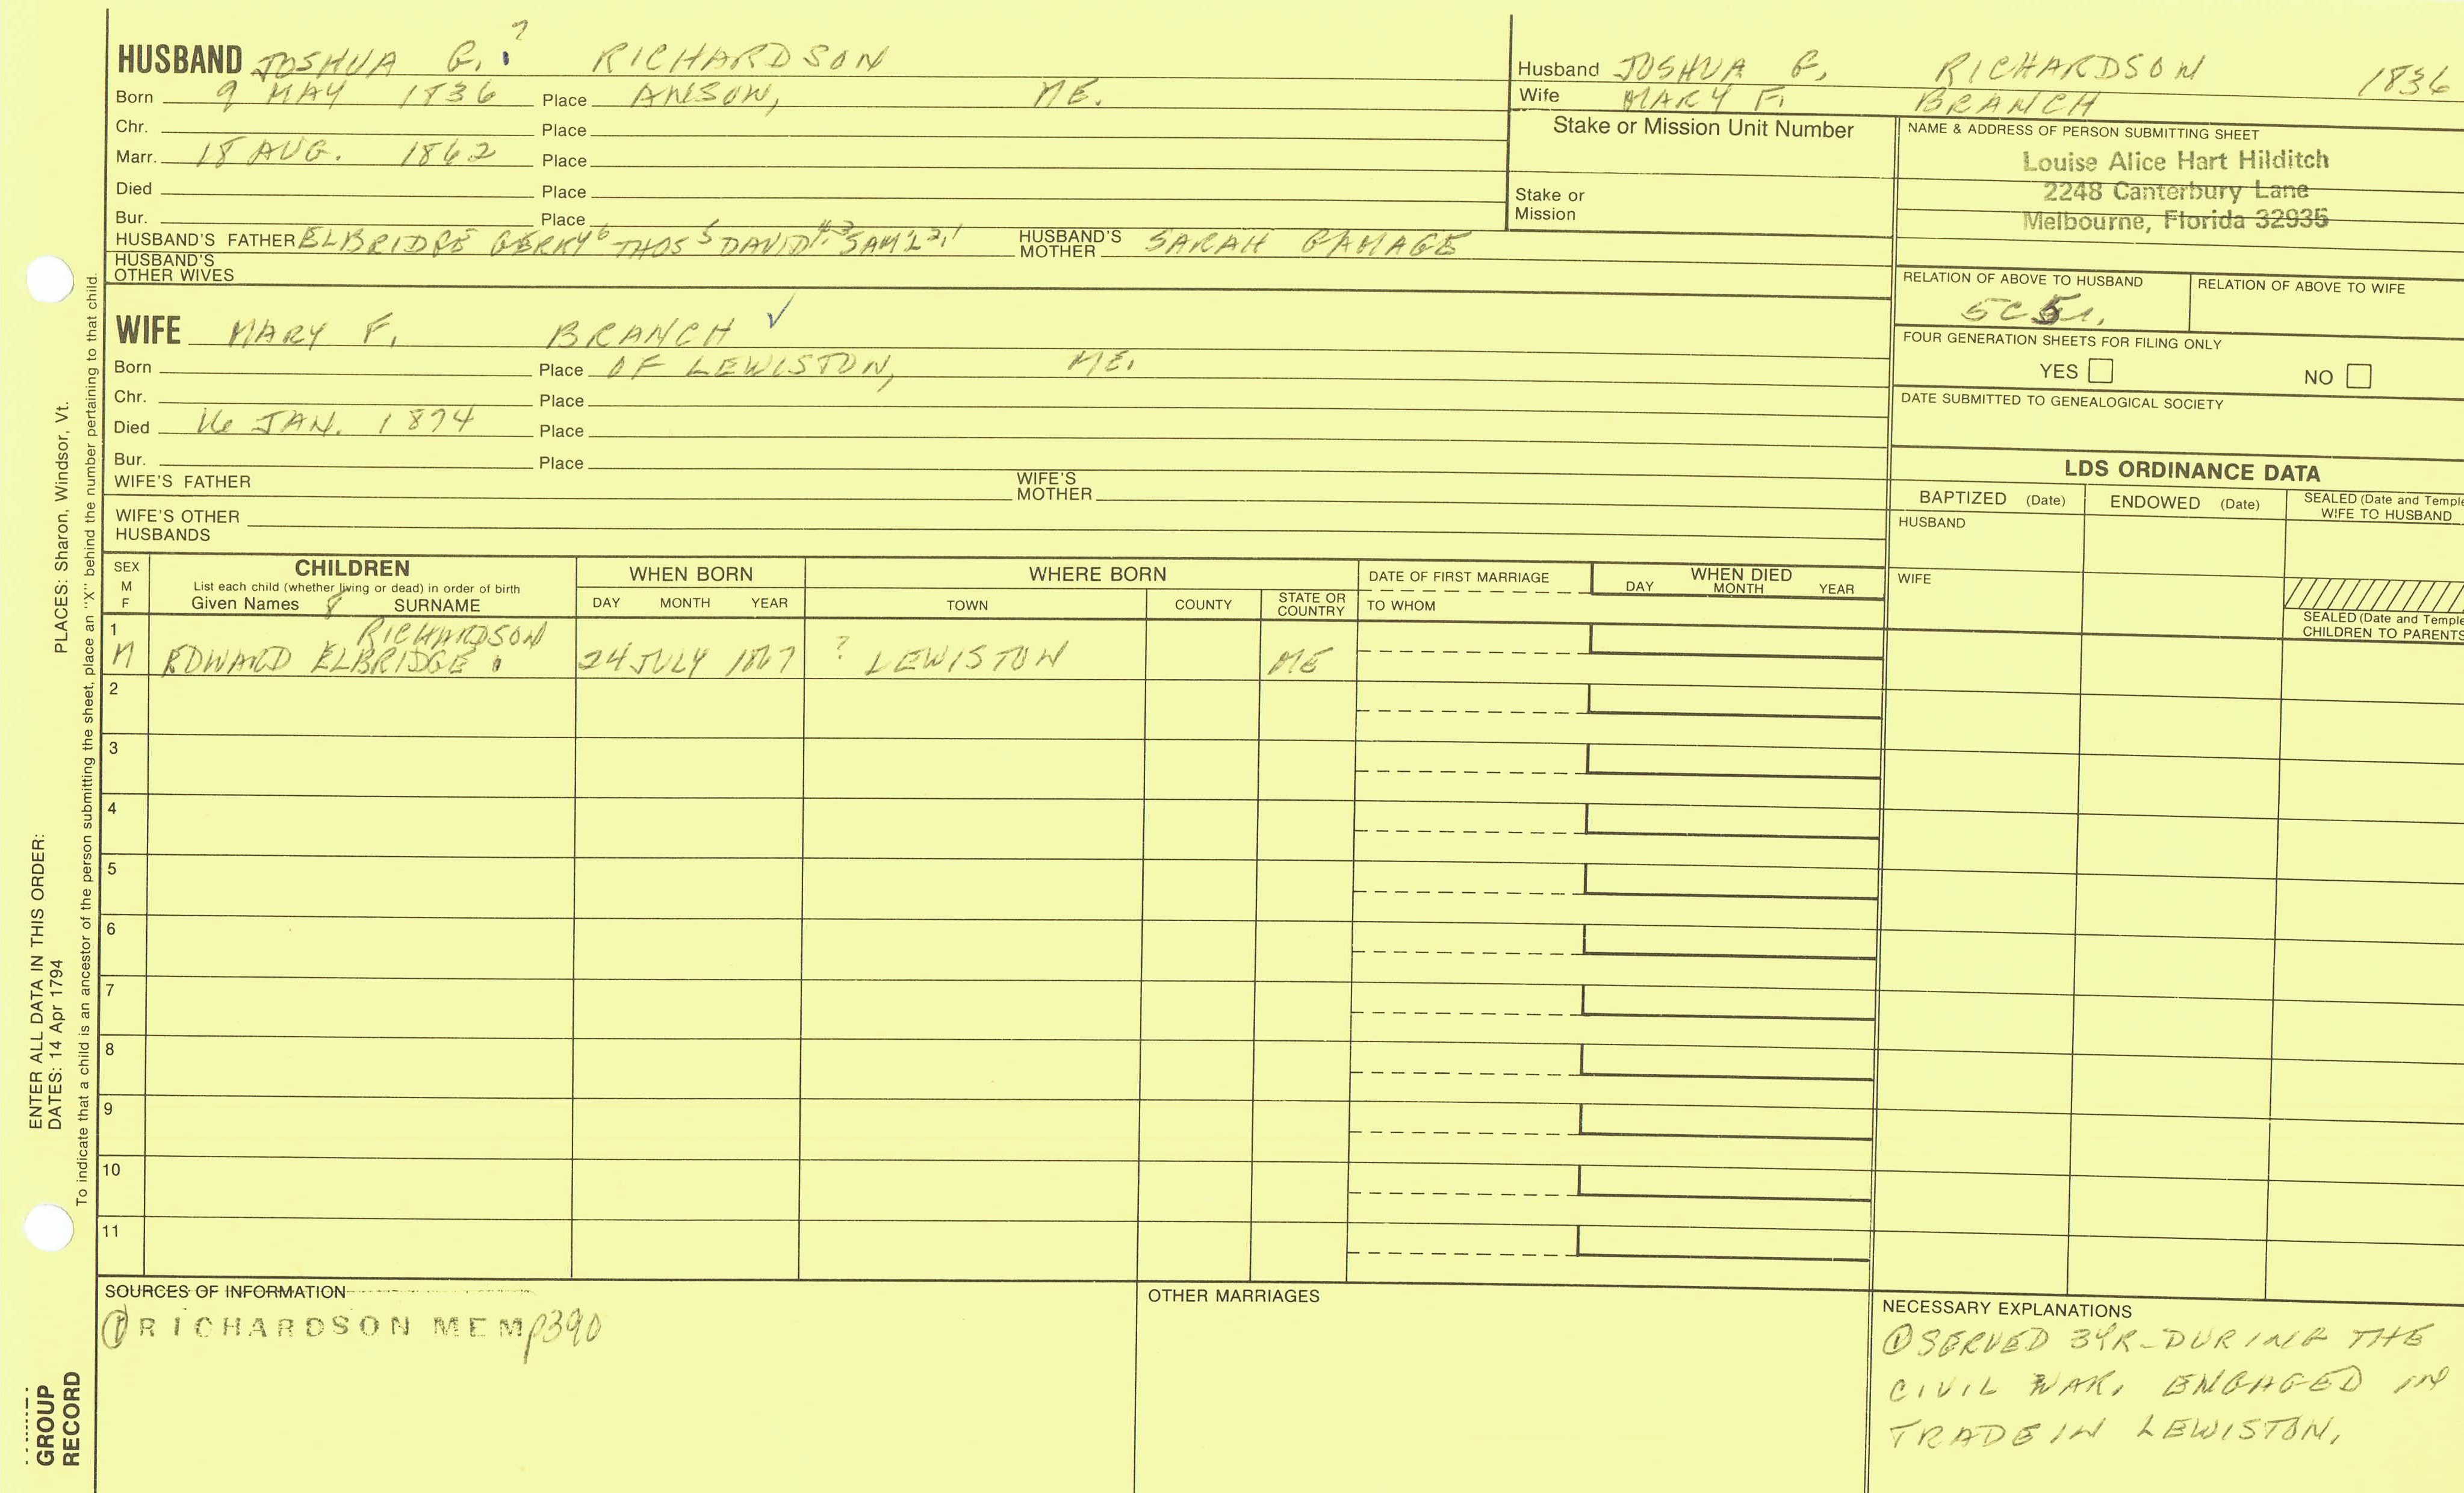 HUSBAND JOSHUA G. ? RICHARDSON
Born 9 MAY 1836 Place ANSON, ME.
Chr. Place
Marr. 18 AUG. 1862 Place
Died Place
Bur. Place
HUSBAND'S FATHER ELBRIDGE GERRY6 THOS5 DAVID4.3 SAM'L2,1 HUSBAND'S MOTHER SARAH GAMAGE
HUSBAND'S OTHER WIVES
WIFE MARY F. BRANCH ✓
Born Place OF LEWISTON, ME.
Chr. Place
Died 16 JAN. 1874 Place
Bur. Place
WIFE'S FATHER WIFE'S MOTHER
WIFE'S OTHER HUSBANDS
Husband JOSHUA G. RICHARDSON 1836
Wife MARY F. BRANCH
Stake or Mission Unit Number
Stake or Mission
NAME & ADDRESS OF PERSON SUBMITTING SHEET
Louise Alice Hart Hilditch
2248 Canterbury Lane
Melbourne, Florida 32935
RELATION OF ABOVE TO HUSBAND
RELATION OF ABOVE TO WIFE
FOUR GENERATION SHEETS FOR FILING ONLY
YES NO
DATE SUBMITTED TO GENEALOGICAL SOCIETY
LDS ORDINANCE DATA
BAPTIZED (Date) ENDOWED (Date) SEALED (Date and Temple
WIFE TO HUSBAND
HUSBAND
WIFE
SEALED (Date and Temple
CHILDREN TO PARENTS
SEX M F
CHILDREN
List each child (whether living or dead) in order of birth
Given Names 8 SURNAME
WHEN BORN
DAY MONTH YEAR
WHERE BORN
TOWN COUNTY STATE OR COUNTRY
DATE OF FIRST MARRIAGE
TO WHOM
WHEN DIED
DAY MONTH YEAR
1 RICHARDSON
M EDWARD ELBRIDGE 24 JULY 1867 ? LEWISTON ME
2
3
4
5
6
7
8
9
10
11
SOURCES OF INFORMATION
① RICHARDSON MEM p390
OTHER MARRIAGES
NECESSARY EXPLANATIONS
① SERVED 3YR. DURING THE
CIVIL WAR. ENGAGED IN
TRADE IN LEWISTON.
ENTER ALL DATA IN THIS ORDER:
DATES: 14 Apr 1794 PLACES: Sharon, Windsor, Vt.
To indicate that a child is an ancestor of the person submitting the sheet, place an "X" behind the number pertaining to that child.
GROUP
RECORD